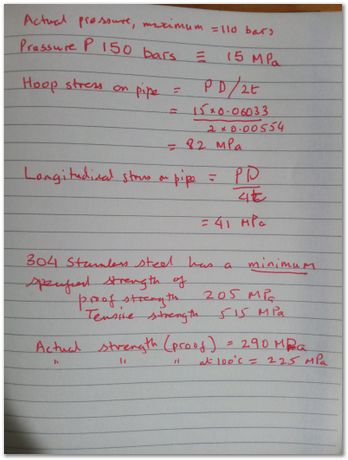 Actual pressure, maximum = 110 bars
Pressure P 150 bars ≡ 15 MPa
Hoop stress on pipe = PD/2t
= 15 x 0.06033
2 x 0.00554
= 82 MPa
Longitudinal stress on pipe = PD
4t
= 41 MPa
304 Stainless steel has a minimum
specified strength of
proof strength 205 MPa
Tensile strength 515 MPa
Actual strength (proof) = 290 MPa
" " " at 100°C = 225 MPa